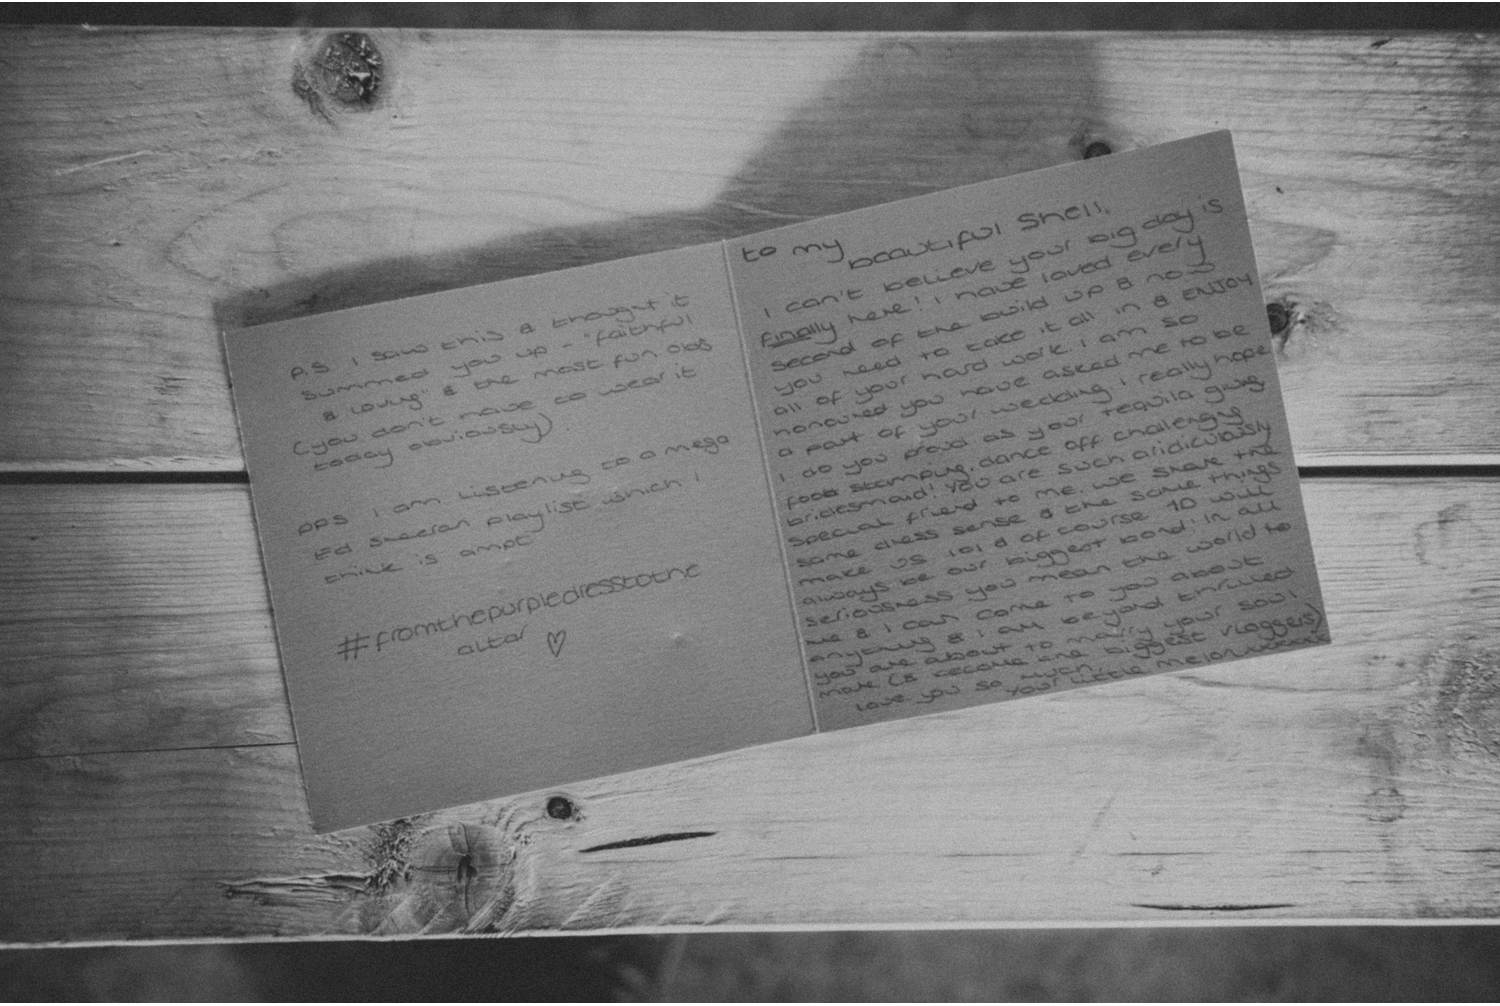 P.S I saw this & thought it
summed you up - "faithful
& loving" & the most fun obvs
(you don't have to wear it
today obviously).
PPS I am listening to a mega
Ed Sheeran playlist which I
think is
#fromthepurpledresstothe
altar ♡
to my
beautiful Shell,
I can't believe your big day is
finally here! I have loved every
second of the build up & now
you need to take it all in & ENJOY
all of your hard work. I am so
honoured you have asked me to be
a part of your wedding. I really hope
I do you proud as your tequila giving,
foot stomping, dance off challenging
bridesmaid! You are such a ridiculously
special friend to me. We share the
same dress sense & the same things
make us lol & of course 1D will
always be our biggest bond! In all
seriousness you mean the world to
me & I can come to you about
anything & I am beyond thrilled
you are about to marry your soul
mate (& become the biggest vloggers)
Love you so much,
Your little